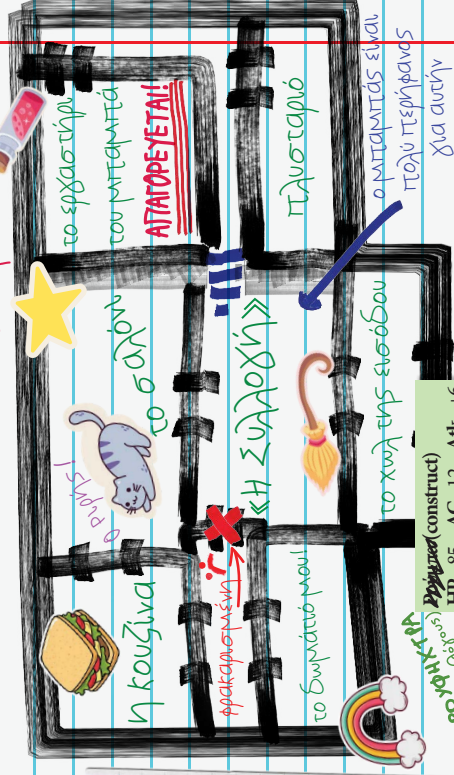 το εργαστήρι
του μπαμπά
ΑΠΑΓΟΡΕΥΕΤΑΙ!
πλυσταριό
ο μπαμπάς είναι
πολύ περήφανος
για αυτήν
το σαλόνι
«Η Συλλογή»
το χωλ της εισόδου
η κουζίνα
φρακαρισμένη
το δωμάτιό μου!
(construct)
HP 85 AC 13